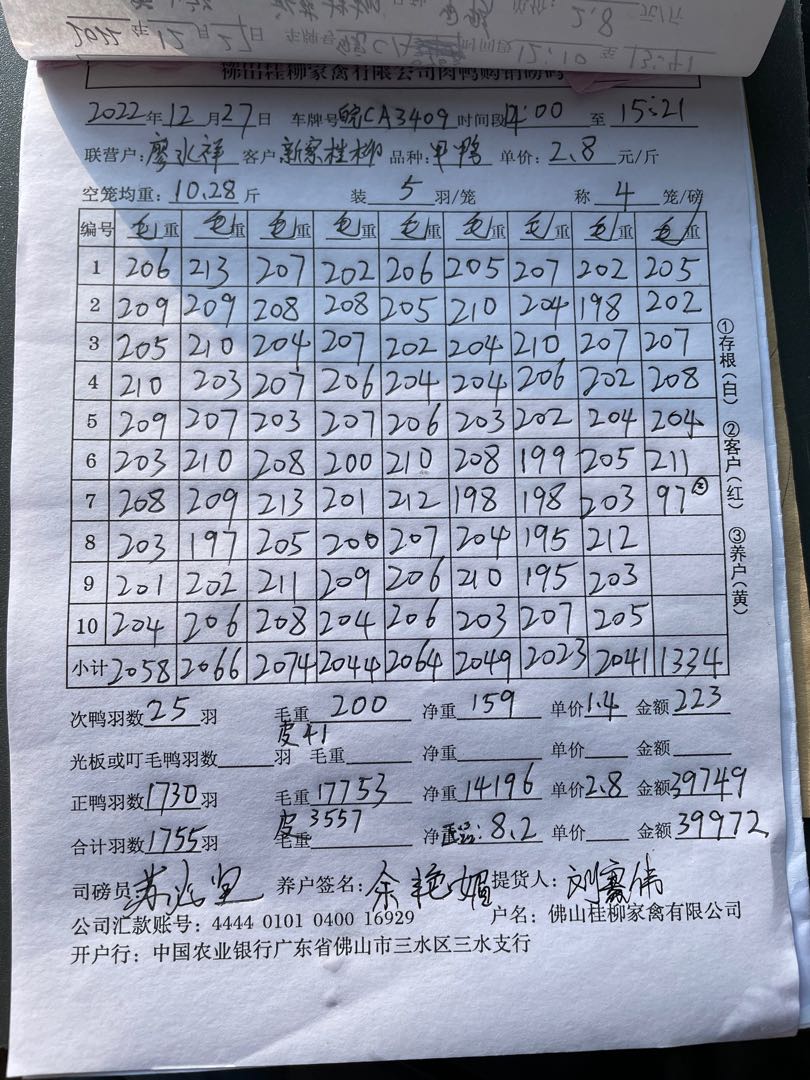 2022年12月27日 车牌号皖CA3409时间段14:00至15:21
联营户:廖永祥 客户新家桂柳 品种:甲鸭 单价:2.8元/斤
空笼均重:10.28斤 装5羽/笼 称4笼/磅
编号 毛重 毛重 毛重 毛重 毛重 毛重 毛重 毛重 毛重
1 206 213 207 202 206 205 207 202 205
2 209 209 208 208 205 210 204 198 202
3 205 210 204 207 202 204 210 207 207
4 210 203 207 206 204 204 206 202 208
5 209 207 203 207 206 203 202 204 204
6 203 210 208 200 210 208 199 205 211
7 208 209 213 201 212 198 198 203 97
8 203 197 205 200 207 204 195 212
9 201 202 211 209 206 210 195 203
10 204 206 208 204 206 203 207 205
小计 2058 2066 2074 2044 2064 2049 2023 2041 1334
①存根(白) ②客户(红) ③养户(黄)
次鸭羽数25羽 毛重200 净重159 单价1.4 金额223
皮41
光板或叮毛鸭羽数 羽 毛重 净重 单价 金额
正鸭羽数1730羽 毛重17753 净重14196 单价2.8 金额39749
皮3557
合计羽数1755羽 毛重 净 :8.2 单价 金额39972
司磅员 养户签名:余艳媚 提货人:刘
公司汇款账号:4444 0101 0400 16929 户名:佛山桂柳家禽有限公司
开户行:中国农业银行广东省佛山市三水区三水支行